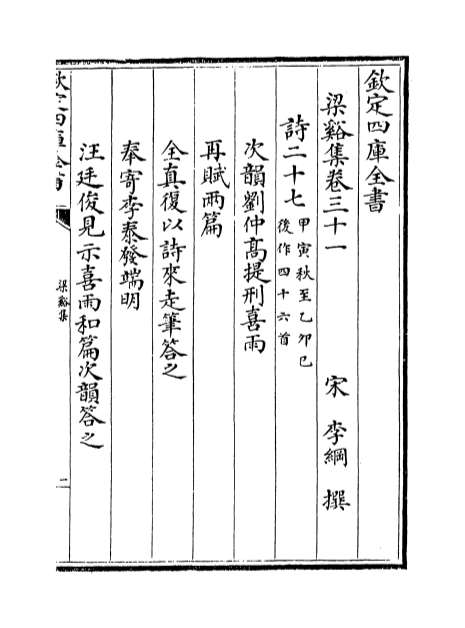 欽定四庫全書
梁谿集卷三十一
宋 李綱 撰
詩二十七
甲寅秋至乙卯已
後作四十六首
次韻劉仲高提刑喜雨
再賦兩篇
全真復以詩來走筆答之
奉寄李泰發端明
汪廷俊見示喜雨和篇次韻答之
欽定四庫全書
梁谿集